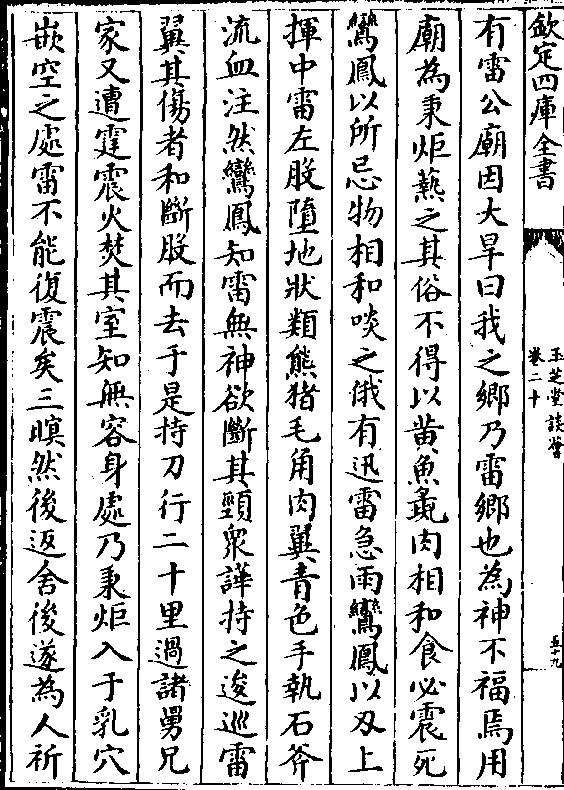 欽定四庫全書
玉芝堂談薈
卷二十
五十九
有雷公廟因大旱曰我之鄉乃雷鄉也為神不福焉用
廟為秉炬爇之其俗不得以黄魚彘肉相和食必震死
鸞鳳以所忌物相和啖之俄有迅雷急雨鸞鳳以刄上
揮中雷左股墮地狀類熊猪毛角肉翼青色手執石斧
流血注然鸞鳳知雷無神欲斷其頸衆譁持之逡巡雷
翼其傷者和斷股而去于是持刀行二十里過諸舅兄
家又遭霆震火焚其室知無容身處乃秉炬入于乳穴
嵌空之處雷不能復震矣三暝然後返舍後遂為人祈